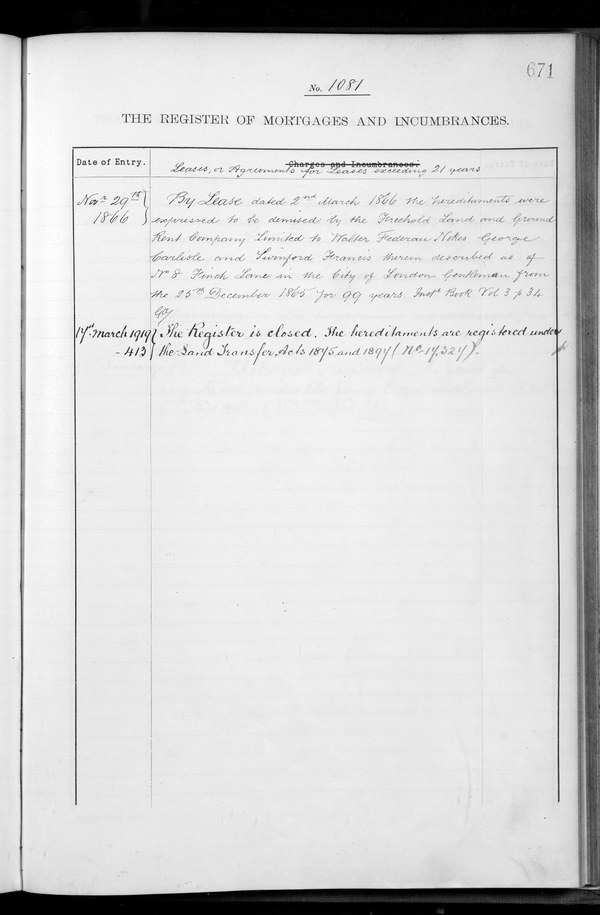 671
No. 1081
THE REGISTER OF MORTGAGES AND INCUMBRANCES.
Date of Entry.
Charges and Incumbrances.
Leases, or Agreements for Leases exceeding 21 years
Novr 29th 1866
By Lease dated 2nd March 1866 the hereditaments were
expressed to be demised by the Freehold Land and Ground
Rent Company Limited to Walter Federan Nokes George
Carlisle and Swinford Francis therein described as of
No 8 Finch Lane in the City of London Gentlemen from
the 25th December 1865 for 99 years. Inst. Book Vol 3 p 34
17th March 1919 The Register is closed. The hereditaments are registered under
- 413 the Land Transfer Acts 1875 and 1897 (No 17,327).